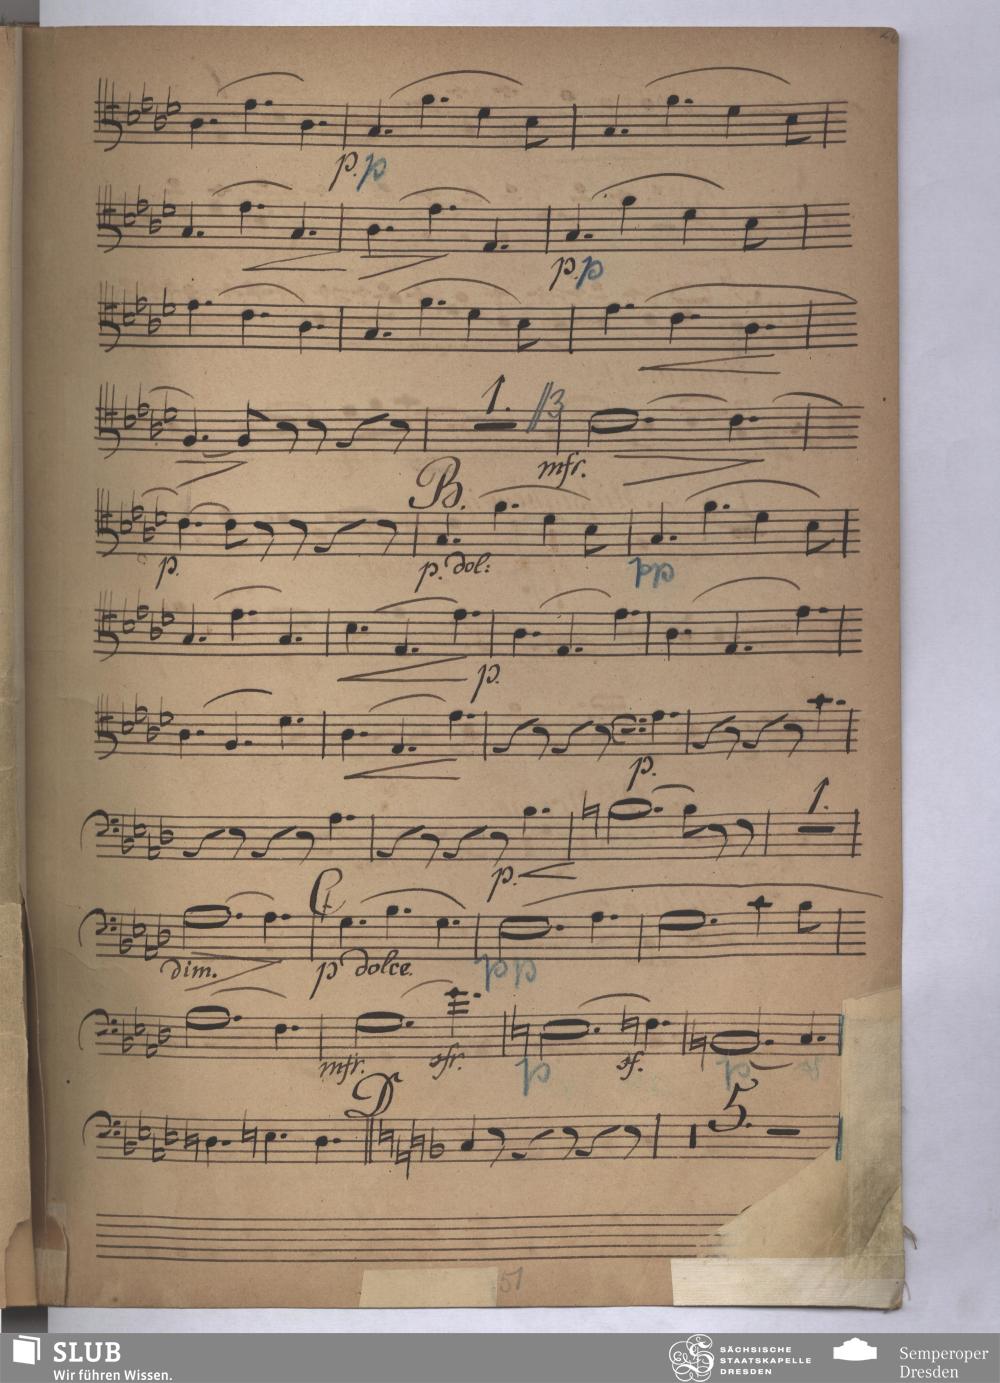 p. p
p. p
1. //3
mfr.
B.
p. p. dol: pp
p.
p.
1.
p.
C
dim. p dolce. ppp
mfr. sfr. p sf. p
D
5.
51
SLUB
Wir führen Wissen.
SÄCHSISCHE
STAATSKAPELLE
DRESDEN
Semperoper
Dresden